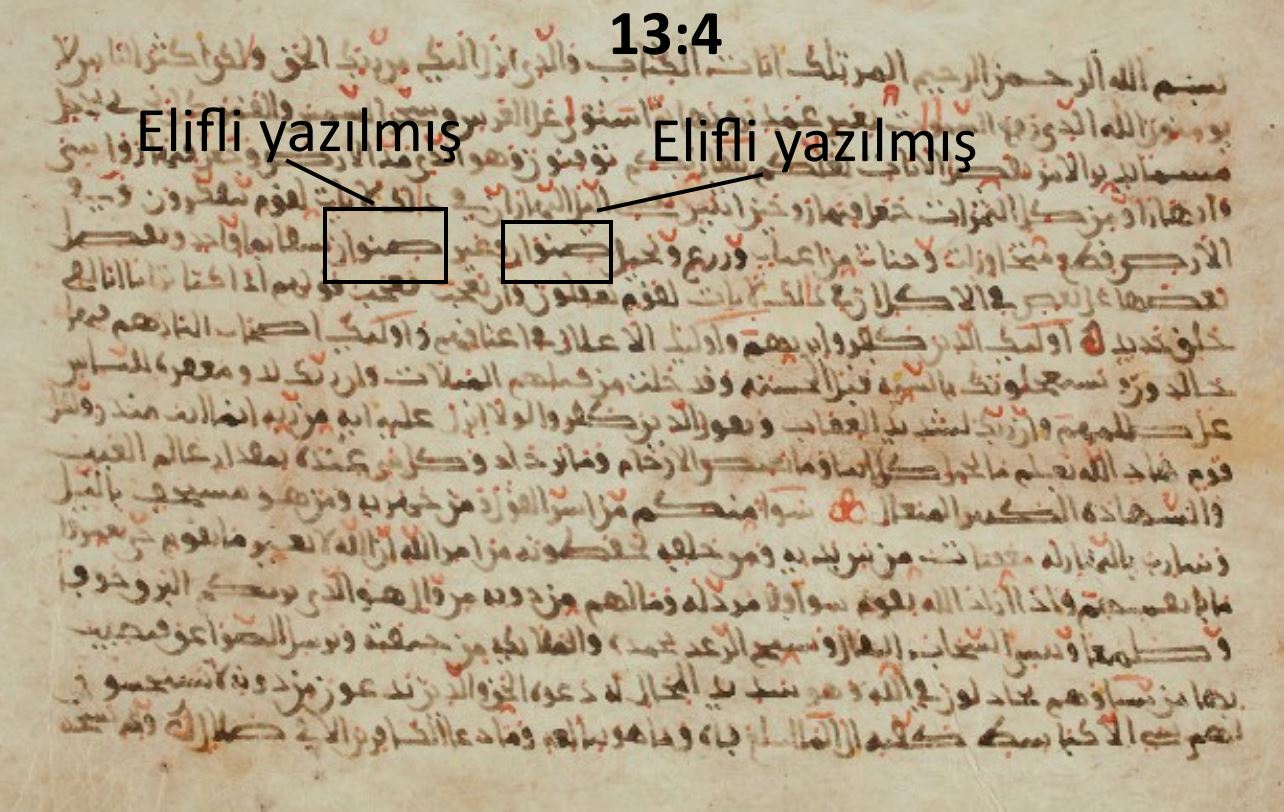 13:4
بسم الله الرحمن الرحيم المر تلك ايات الكتاب والذي انزل اليك من ربك الحق ولكن اكثر الناس لا
Elifli yazılmış
Elifli yazılmış
يومنون الله الذي رفع بغير عمد استوى على العرش
مسمى يدبر الامر يفصل الايات لعلكم بلقا ربكم توقنون وهو الذي مد الارض رواسي
وانهارا ومن كل الثمرات جعل فيها زوجين اثنين يغشي الليل النهار ان في ذلك لايات لقوم يتفكرون وفي
الارض قطع متجاورات وجنات من اعناب وزرع ونخيل صنوان وغير صنوان يسقى بما واحد ونفضل
بعضها على بعض في الاكل ان في ذلك لايات لقوم يعقلون وان تعجب فعجب قولهم اذا كنا ترابا انا لفي
خلق جديد اوليك الذين كفروا بربهم واوليك الاغلال في اعناقهم واوليك اصحاب النار هم فيها
خالدون ويستعجلونك بالسيئة قبل الحسنة وقد خلت من قبلهم المثلات وان ربك لذو مغفرة للناس
على ظلمهم وان ربك لشديد العقاب ويقول الذين كفروا لولا انزل عليه اية من ربه انما انت منذر ولكل
قوم هاد الله يعلم ما تحمل كل انثى وما تغيض الارحام وما تزداد وكل شي عنده بمقدار عالم الغيب
والشهادة الكبير المتعال سوا منكم من اسر القول ومن جهر به ومن هو مستخف بالليل
وسارب بالنهار له معقبات من بين يديه ومن خلفه يحفظونه من امر الله ان الله لا يغير ما بقوم حتى يغيروا
ما بانفسهم واذا اراد الله بقوم سوا فلا مرد له وما لهم من دونه من وال هو الذي يريكم البرق خوفا
وطمعا وينشي السحاب الثقال ويسبح الرعد بحمده والملايكة من خيفته ويرسل الصواعق فيصيب
بها من يشا وهم يجادلون في الله وهو شديد المحال له دعوة الحق والذين يدعون من دونه لا يستجيبون
لهم بشي الا كباسط كفيه الى الما ليبلغ فاه وما هو ببالغه وما دعا الكافرين الا في ضلال ولله يسجد